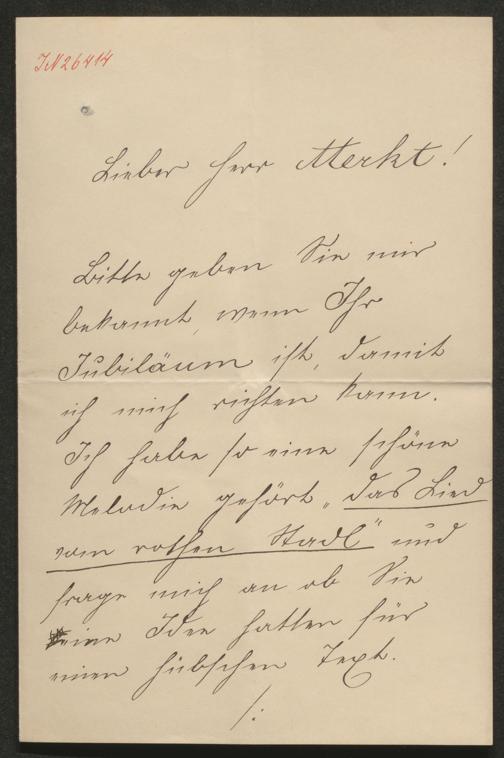 IN 26414
Lieber Herr Merkt!
Bitte geben Sie mir
bekannt, wenn Ihr
Jubiläum ist, damit
ich mich richten kann.
Ich habe so eine schöne
Melodie gehört „das Lied
vom rothen Stadl“ und
frage mich an ob Sie
eine Idee hatten für
einen hübschen Text.
/: